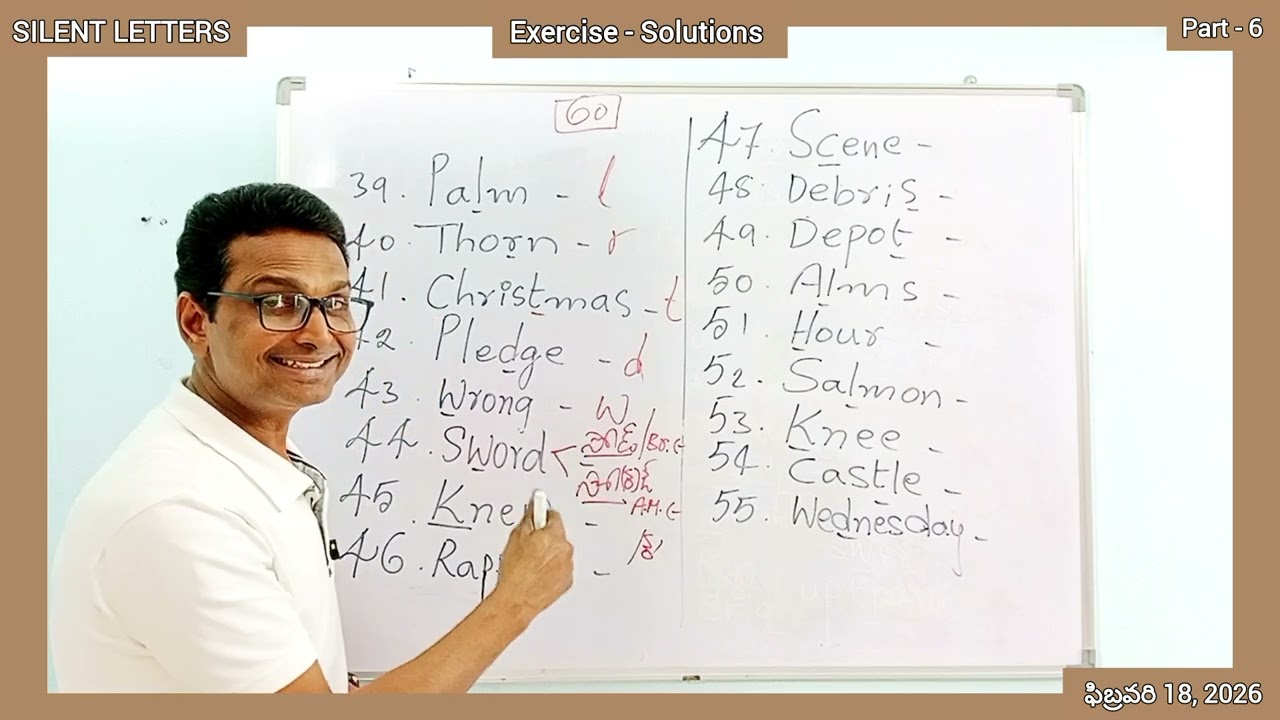 SILENT LETTERS
Exercise - Solutions
Part - 6
60
39. Palm - l
40. Thorn - r
41. Christmas - t
42. Pledge - d
43. Wrong - w
44. Sword
Br. E
A.M. E
45. Kne
46. Rap -
47. Scene -
48. Debris -
49. Depot -
50. Alms -
51. Hour -
52. Salmon -
53. Knee -
54. Castle -
55. Wednesday -
ఫిబ్రవరి 18, 2026